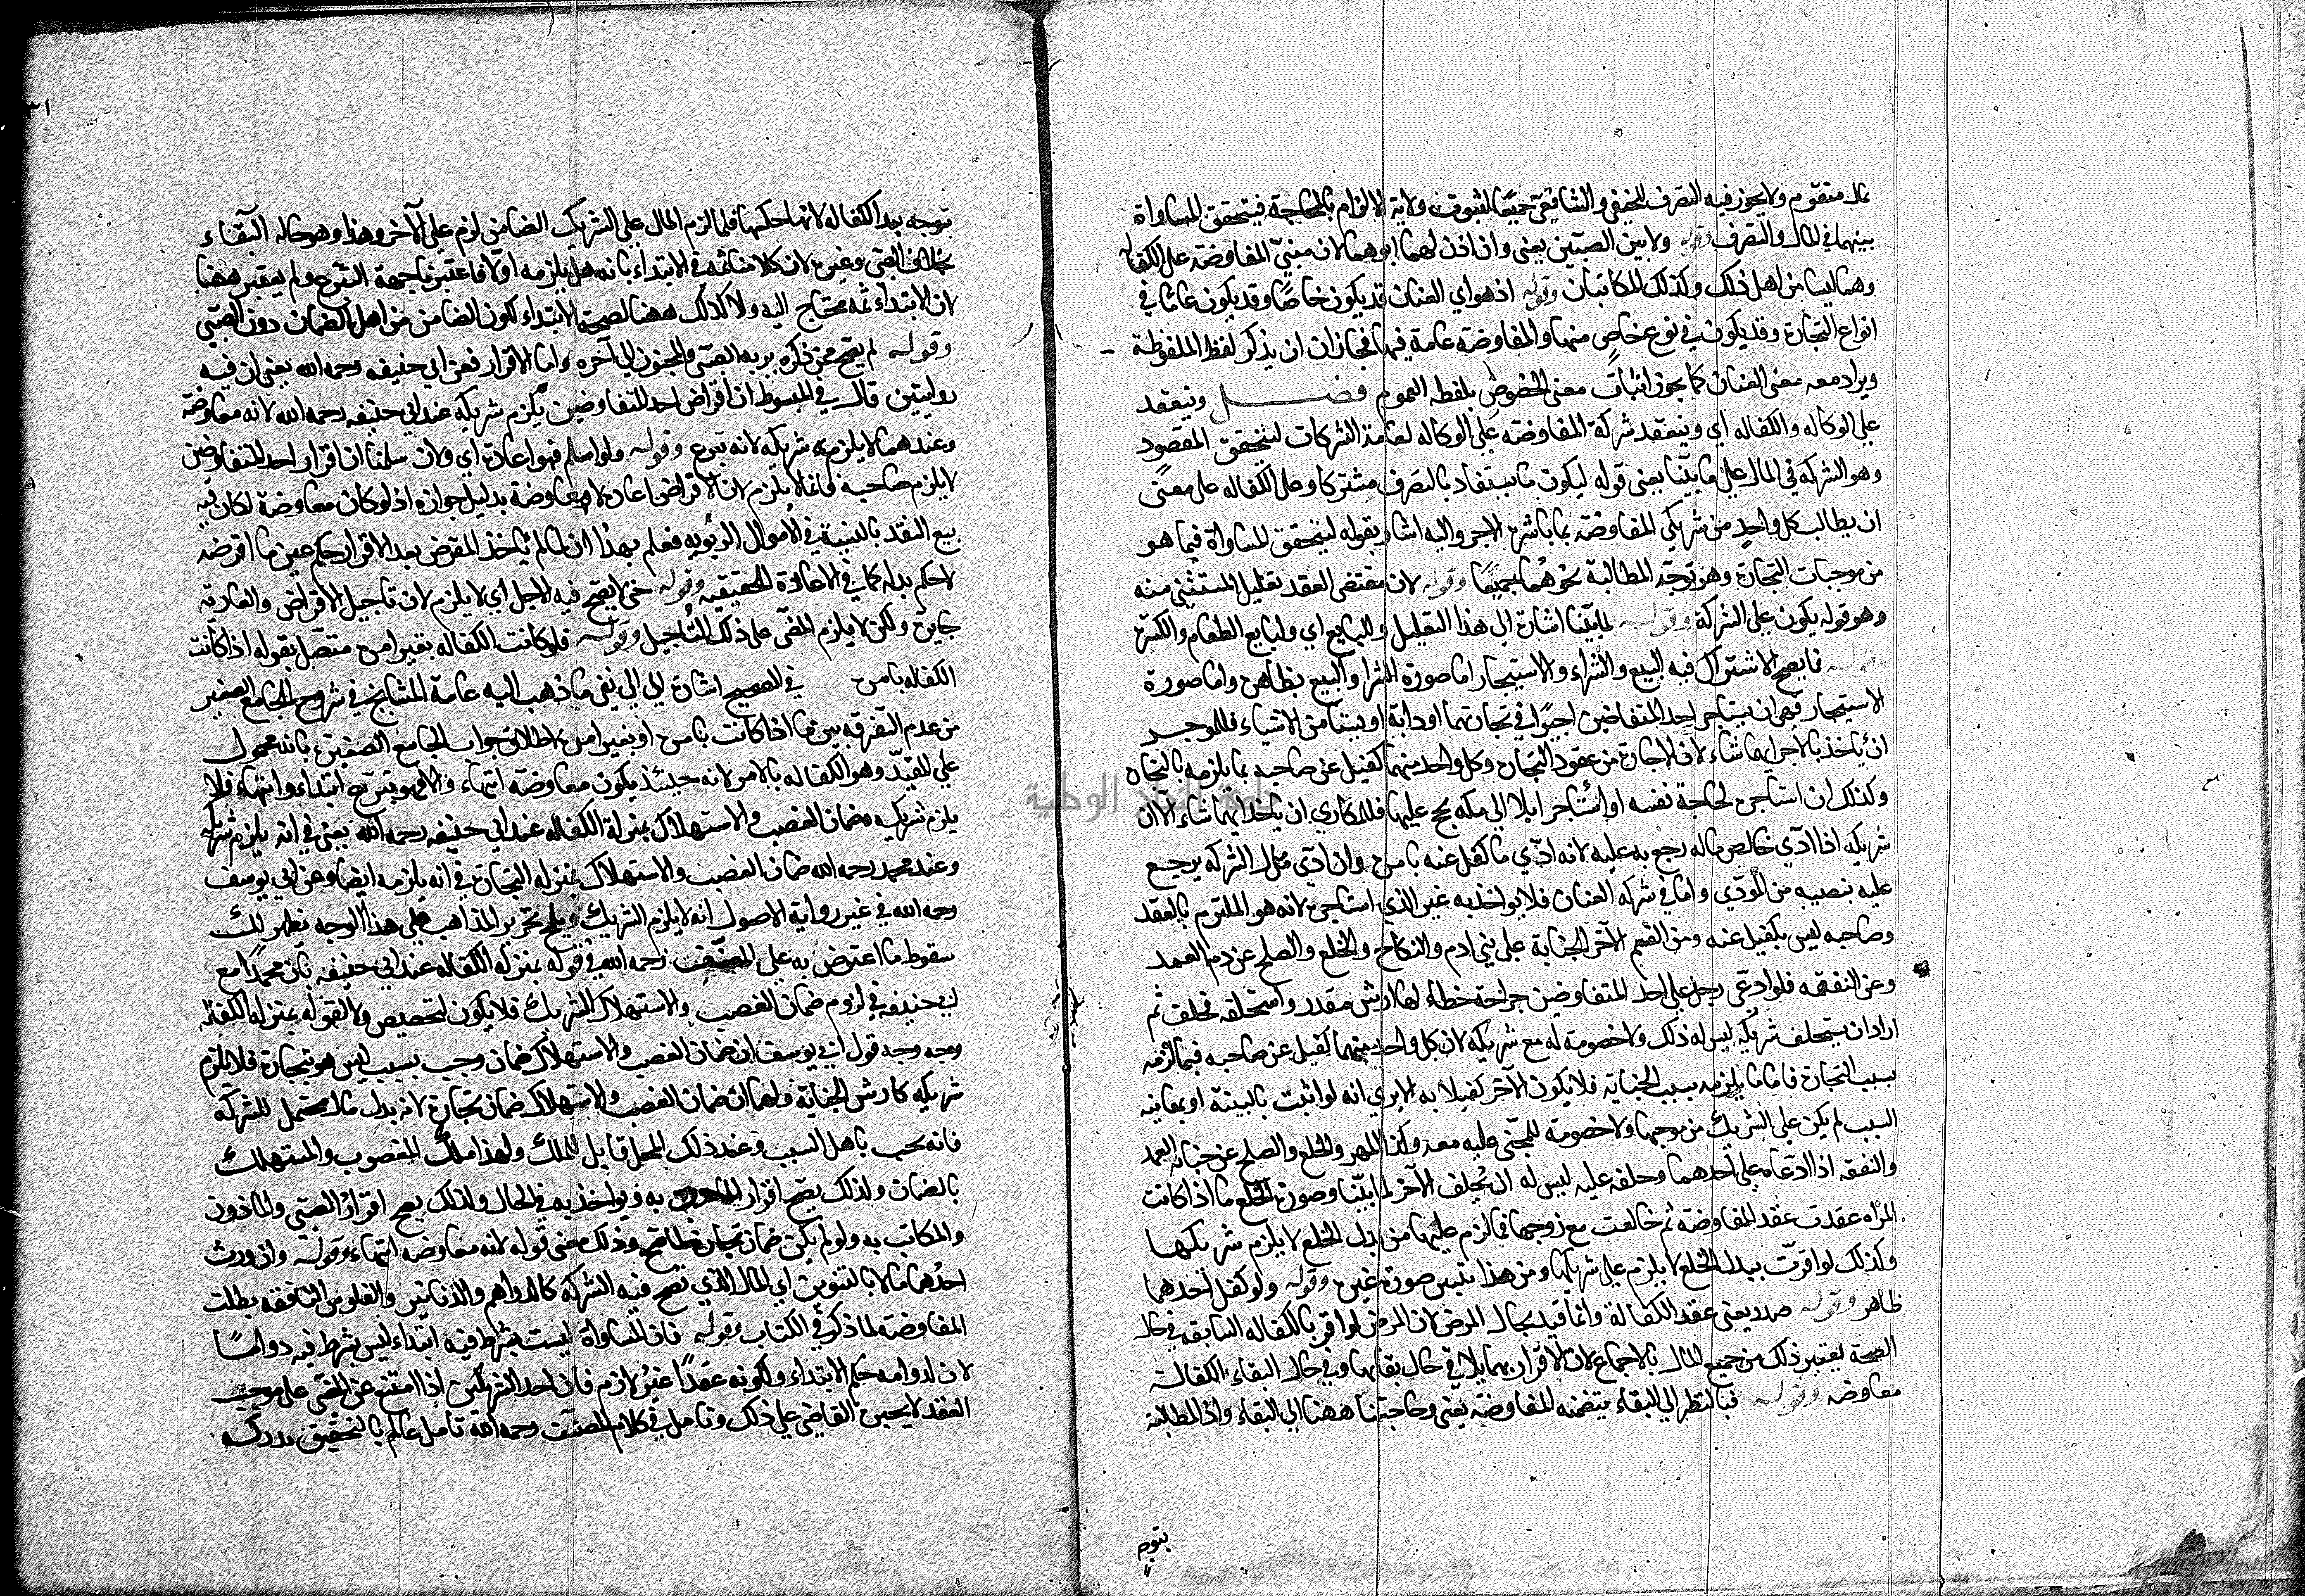 بمال متقوم ولا يجوز فيه التصرف للحنفي والشافعي جميعا لثبوت ولاية الالزام بالمحاجة فيتحقق المساواة
بينهما في المال والتصرف وقوله ولا بين الصبيين يعني وان اذن لهما ابوهما لان مبنى المفاوضة على الكفاله
وهما ليسا من اهل ذلك وكذلك المكاتبان وقوله اذ هو اي العنان قد يكون خاصا وقد يكون عاما في
انواع التجارة وقد يكون في نوع خاص منها والمفاوضة عامة فيها فجاز ان يذكر لفظ
ويراد معه معنى العنان كما يجوز اثبات معنى الخصوص بلفظه العموم فصل وينعقد
على الوكاله والكفاله اي وينعقد شركة المفاوضة على الوكاله لعامة الشركات ليتحقق المقصود
وهو الشركه في المال على ما بينا يعني قوله ليكون ما يستفاد بالتصرف مشتركا وعلى الكفاله على معنى
ان يطالب كل واحد من شريكي المفاوضة بما باشره الاخر واليه اشار بقوله ليتحقق المساواة فيما هو
من موجبات التجارة وهو توجه المطالبة نحوهما جميعا وقوله لان مقتضى العقد تعليل المستثنى منه
وهو قوله يكون على الشركة وقوله لما بينا اشارة الى هذا التعليل وللبايع اي ولبايع الطعام والكسوة
وقوله فما يصح الاشتراك فيه البيع والشراء والاستيجار اما صورة الشرا والبيع فظاهرة واما صورة
الاستيجار فهي ان يستاجر احد المتفاوضين اجيرا في تجارتهما او دابة او بيتا من الاشياء فللموجر
ان ياخذ بالاجر ايهما شاء لان الاجارة من عقود التجارة وكل واحد منهما كفيل عن صاحبه بما يلزمه بالتجارة
وكذلك ان استاجره لحاجة نفسه او استاجر ابلا الى مكه يحج عليها فللمكاري ان ياخذ ايهما شاء الا ان
شريكه اذا ادى من خالص ماله رجع به عليه لانه ادى ما كفل عنه بامره وان ادى من مال الشركه يرجع
عليه بنصيبه من المودى واما في شركه العنان فلا يواخذ به غير الذي استاجره لانه هو الملتزم بالعقد
وصاحبه ليس بكفيل عنه ومن القسم الاخر الجناية على بني ادم والنكاح والخلع والصلح عن دم العمد
وعن النفقه فلو ادعى رجل على احد المتفاوضين جراحة خطاء لها ارش مقدر واستحلفه فحلف ثم
اراد ان يستحلف شريكه ليس له ذلك ولا خصومة له مع شريكه لان كل واحد منهما كفيل عن صاحبه فيما لزمه
بسبب التجارة فاما ما يلزمه بسبب الجناية فلا يكون الاخر كفيلا به الا يرى انه لو اثبت بالبينة او بمعاينه
السبب لم يكن على الشريك من موجبها ولا خصومة للمجنى عليه معه وكذا المهر والخلع والصلح عن جناية العمد
والنفقه اذا ادعاه على احدهما وحلفه عليه ليس له ان يحلف الاخر لما بينا وصورة الخلع ما اذا كانت
المراه عقدت عقد المفاوضة ثم خالعت مع زوجها فما لزم عليها من بدل الخلع لا يلزم شريكها
وكذلك لو اقرت ببدل الخلع لا يلزم على شريكها ومن هذا يتبين صورة غيره وقوله ولو كفل احدهما
ظاهر وقوله صدر يعني عقد الكفالة وانما قيد بحال المرض لان المرض لو اقر بالكفاله السابقه في حال
الصحة يعتبر ذلك من جميع المال بالاجماع لان الاقرار بهما يلاقي حال بقائها وفي حال البقاء الكفالة
معاوضة وقوله فبالنظر الى البقاء يتضمنه المفاوضة يعني وحاجتنا ههنا الى البقاء واذا المطالبة
بتوجه
توجه بعد الكفاله لانها حكمها فلما لزم المال على الشريك الضامن لزم على الاخر وهذا وهو حاله البقاء
بخلاف الصبي وغيره لان كلامنا ثمة في الابتداء بانه هل يلزمه اولا فاعتبرنا جهة التبرع ولم يعتبر ههنا
لان الابتداء ثمة محتاج اليه ولا كذلك ههنا لصحة الابتداء لكون الضامن من اهل الضمان دون الصبي
وقوله لم يصح ممن ذكره يريد به الصبي والمجنون الى آخره واما الاقراض فعن ابي حنيفه رحمه الله يعني ان فيه
روايتين قال في المبسوط ان اقراض احد المتفاوضين يلزم شريكه عند ابي حنيفه رحمه الله لانه معاوضة
وعندهما لا يلزمه شريكه لانه تبرع وقوله ولو سلم فهو اعادة اي ولان سلمنا ان اقراض احد المتفاوضين
لا يلزم صاحبه فانما لا يلزم لان الاقراض اعادة لا معاوضة بدليل جوازه اذ لو كان معاوضة لكان فيه
بيع النقد بالنسيئة في الاموال الربويه فعلم بهذا ان مالم ياخذ المقرض بعد الاقرار حكم عين ما اقرضه
لا حكم بدله كما في الاعادة الحقيقيه وقوله حتى لا يصح فيه الاجل اي لا يلزم لان تاجيل الاقراض والعارية
جايز ولكن لا يلزم المضي على ذلك التاجيل وقوله فلو كانت الكفاله بغير امره متصل بقوله اذا كانت
الكفاله بامره في الصحيح اشارة الى نفي ما ذهب اليه عامة المشايخ في شروح الجامع الصغير
من عدم التفرقه بين ما اذا كانت بامره او بغير امره واطلاق جواب الجامع الصغير بانه محمول
على المقيد وهو الكفاله بالامر لانه حينئذ يكون معاوضة انتهاء والا فهو تبرع ابتداء وانتهاء فلا
يلزم شريكه وضمان الغصب والاستهلاك بمنزلة الكفاله عند ابي حنيفه رحمه الله يعني في انه يلزم شريكه
وعند محمد رحمه الله ضمان الغصب والاستهلاك بمنزله التجارة في انه يلزمه ايضا وعن ابي يوسف
رحمه الله في غير رواية الاصول انه لا يلزم الشريك تحرير المذاهب على هذا الوجه تظهر لك
سقوط ما اعترض به على المصنف رحمه الله في قوله بمنزله الكفاله عند ابي حنيفه بان محمدا مع
ابي حنيفه في لزوم ضمان الغصب والاستهلاك الشريك فلا يكون لتخصيص ولا لقوله بمنزله الكفاله
وجه وجه قول ابي يوسف ان ضمان الغصب والاستهلاك ضمان وجب بسبب ليس هو بتجارة فلا يلزم
شريكه كارش الجناية ولهما ان ضمان الغصب والاستهلاك ضمان تجارة لانه بدل مال محتمل للشركه
فانه يجب باهل السبب وعند ذلك المحل قابل للملك ولهذا ملك المغصوب والمستهلك
بالضمان ولذلك يصح اقرار الماذون به ويواخذ به في الحال ولذلك يصح اقرار الصبي والماذون
والمكاتب به ولو لم يكن ضمان تجارة لما صح وذلك معنى قوله لانه معاوضة انتهاء وقوله وان ورث
احدهما مالا بالتنوين اي المال الذي تصح فيه الشركة كالدراهم والدنانير والفلوس النافقه بطلت
المفاوضة لما ذكر في الكتاب وقوله فان المساواة ليست بشرط فيه ابتداء ليس بشرط فيه دواما
لان لدوامه حكم الابتداء ولكونه عقدا غير لازم فان احد الشريكين اذا امتنع عن المضي على موجب
العقد لا يجبره القاضي على ذلك وتامل في كلام المصنف رحمه الله تامل عالم بالتحقيق مدركه